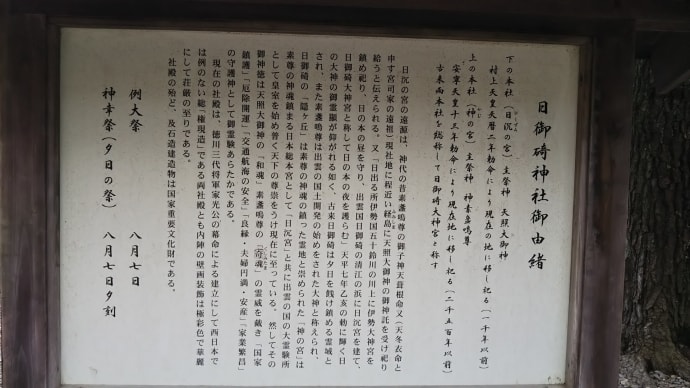 日御碕神社御由緒
下の本社（日沉の宮）主祭神 天照大御神
村上天皇天暦二年勅命により現在の地に移し祀る（一千年以前）
上の本社（神の宮）主祭神 神素盞嗚尊
安寧天皇十三年勅命により現在地に移し祀る（二千五百年以前）
古来両本社を総称して日御碕大神宮と称す
日沉の宮の遠源は、神代の昔素盞嗚尊の御子神天葺根命又（天冬衣命と
申す宮司家の遠祖）現社地に程近い経島に天照大御神の御神託を受け祀り
給うと伝えられる。又「日出る所伊勢国五十鈴川の川上に伊勢大神宮を
鎮め祀り、日の本の昼を守り、出雲国日御碕の清江の浜に日沉宮を建て、
日御碕大神宮と称して日の本の夜を護らむ」天平七年乙亥の勅に輝く日
の大神の御霊顕が仰がれる如く、古来日御碕は夕日を餞け鎮める霊域と
され、また素盞嗚尊は出雲の国土開発の始めをされた大神と称えられ、
日御碕の「隠ヶ丘」は素尊の神魂の鎮った霊地と崇められた「神の宮」は
素尊の神魂鎮まる日本総本宮として「日沉宮」と共に出雲の国の大霊験所
として皇室を始め普く天下の尊崇をうけ現在に至っている。然してその
御神徳は天照大御神の「和魂」素盞嗚尊の「奇魂」の霊威を戴き「国家
鎮護」「厄除開運」「交通航海の安全」「良縁・夫婦円満・安産」「家業繁昌」
の守護神として御霊験あらたかである。
現在の社殿は、徳川三代将軍家光公の幕命による建立にして西日本で
は例のない総「権現造」である両社殿とも内陣の壁画装飾は極彩色で華麗
にして荘厳の至りである。
社殿の殆ど、及石造建造物は国家重要文化財である。
例大祭 八月七日
神幸祭（夕日の祭） 八月七日夕刻